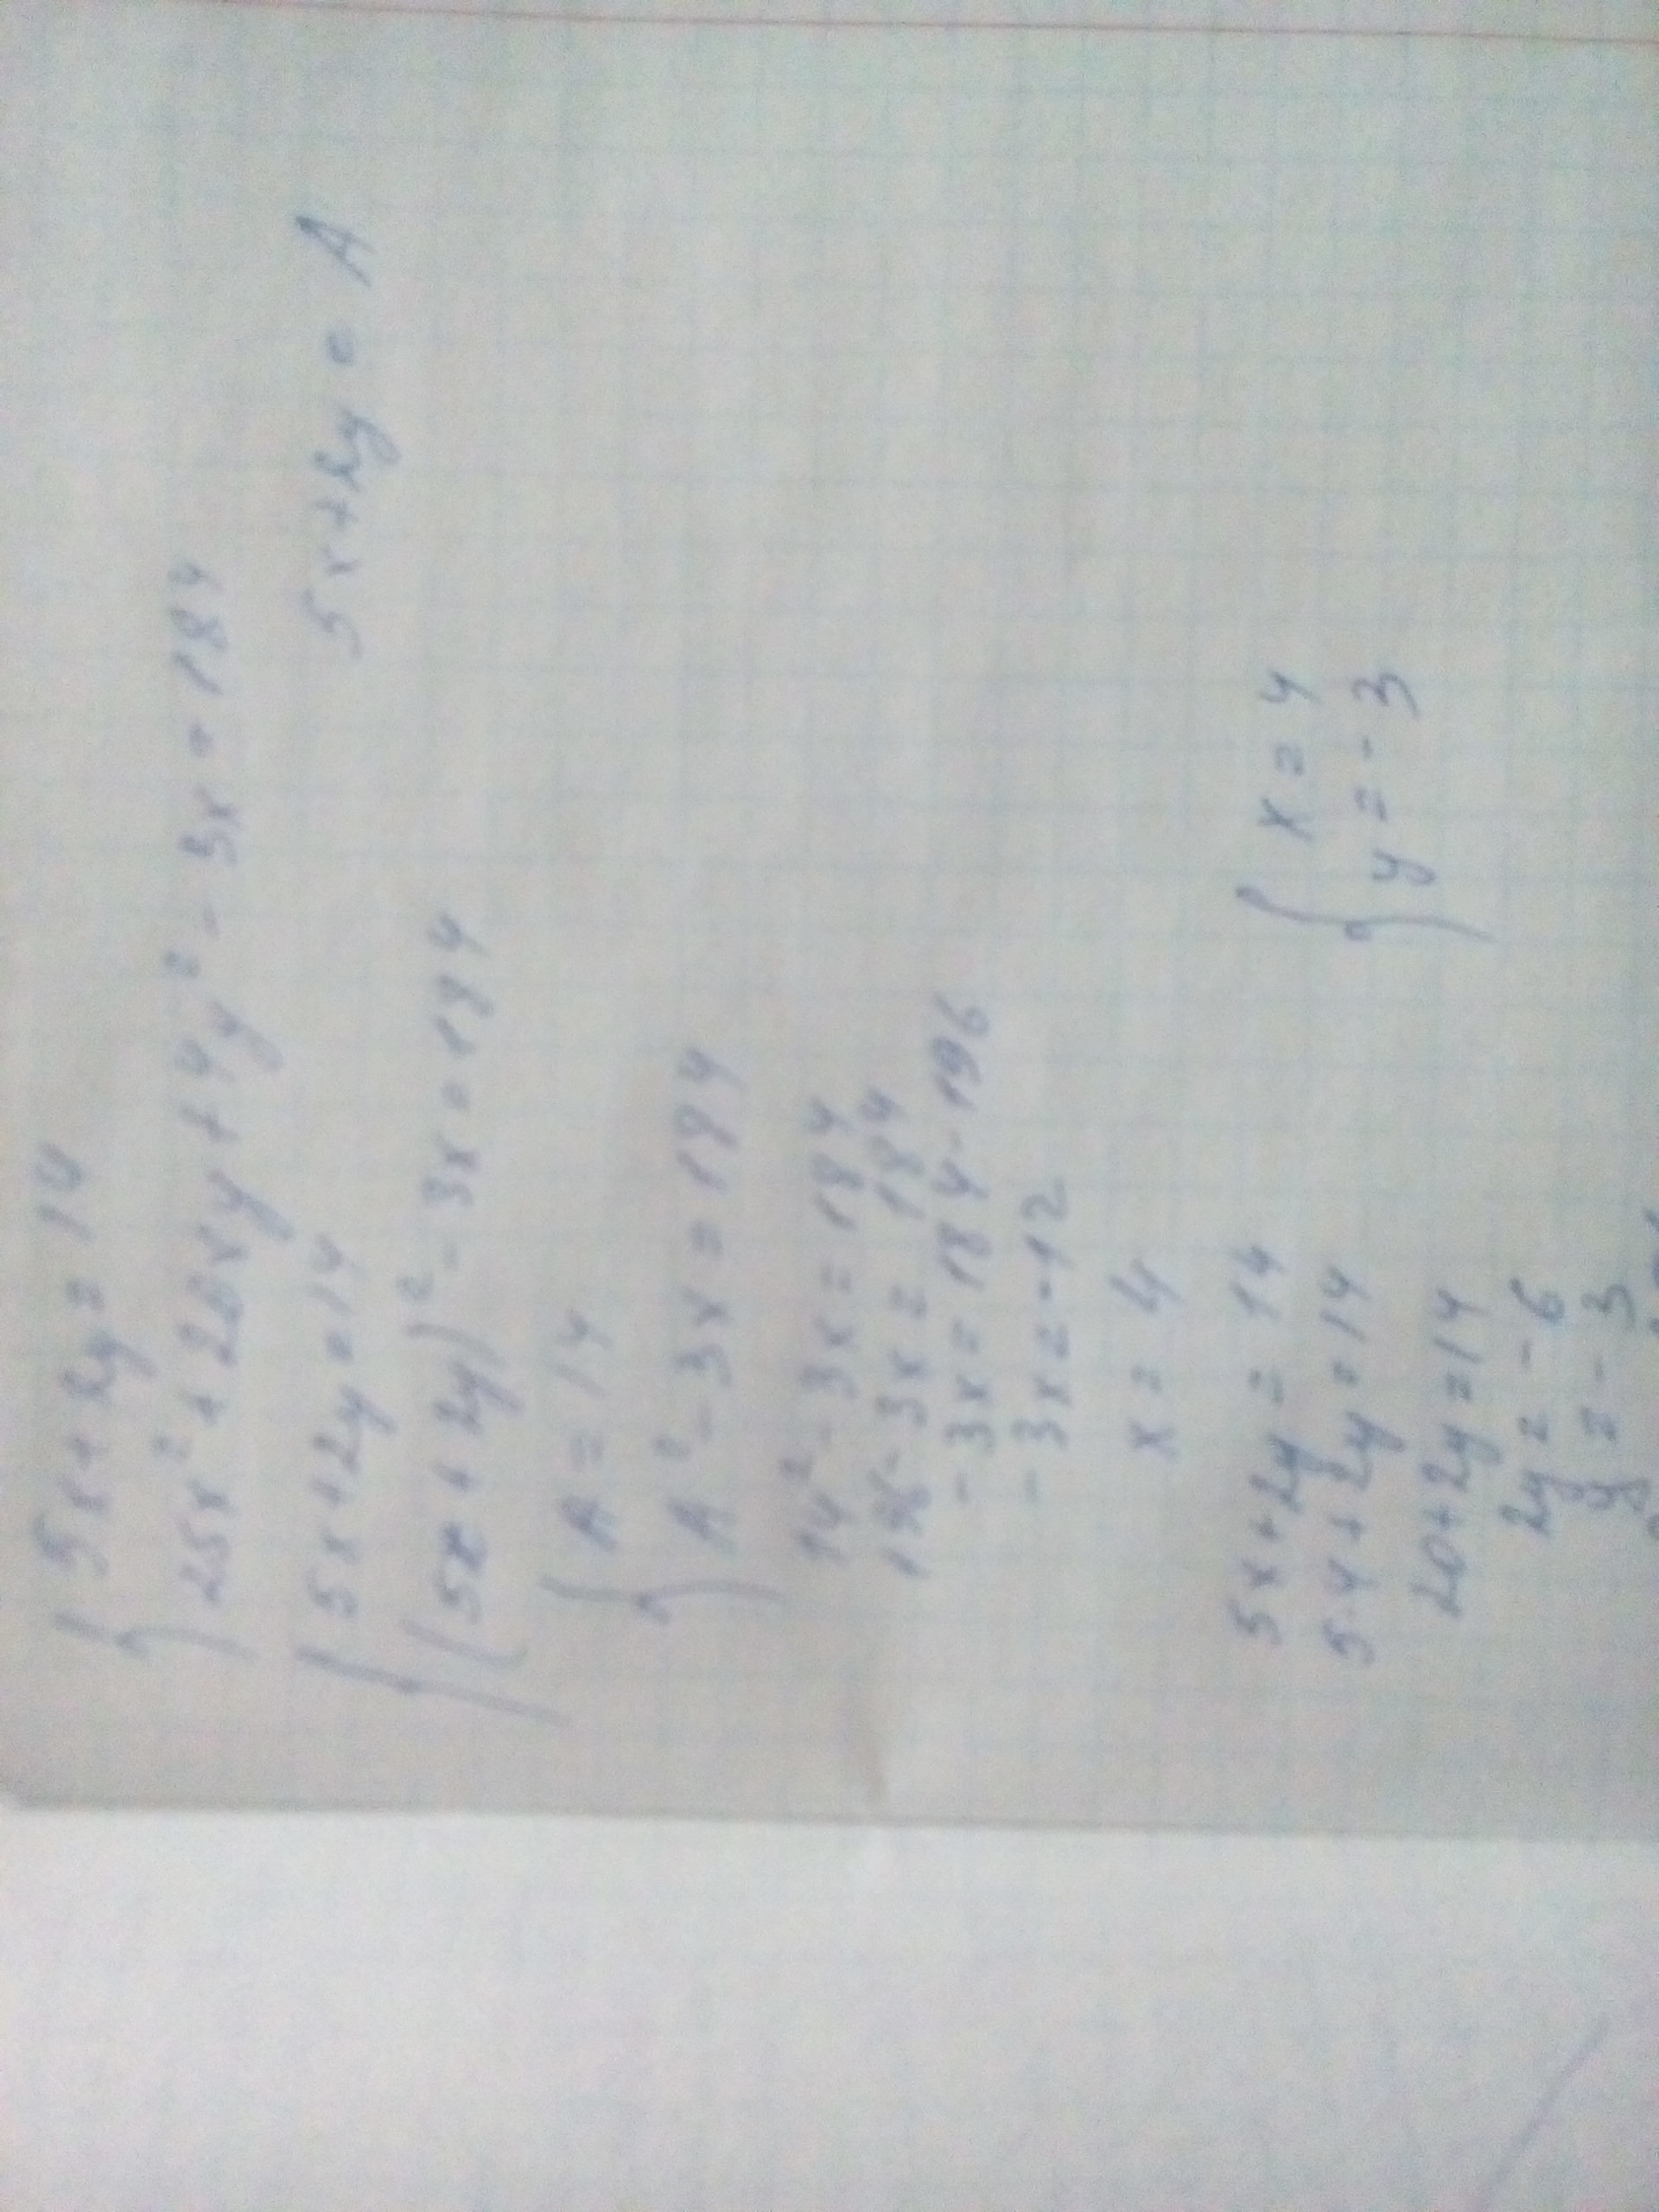 5x + 2y = 14
25x² + 20xy + 4y² - 3x = 184
5x + 2y = 14 5x + 2y = A
(5x + 2y)² - 3x = 184
A = 14
A² - 3x = 184
14² - 3x = 184
196 - 3x = 184
- 3x = 184 - 196
- 3x = -12
x = 4
5x + 2y = 14 x = 4
5·4 + 2y = 14 y = -3
20 + 2y = 14
2y = -6
y = -3